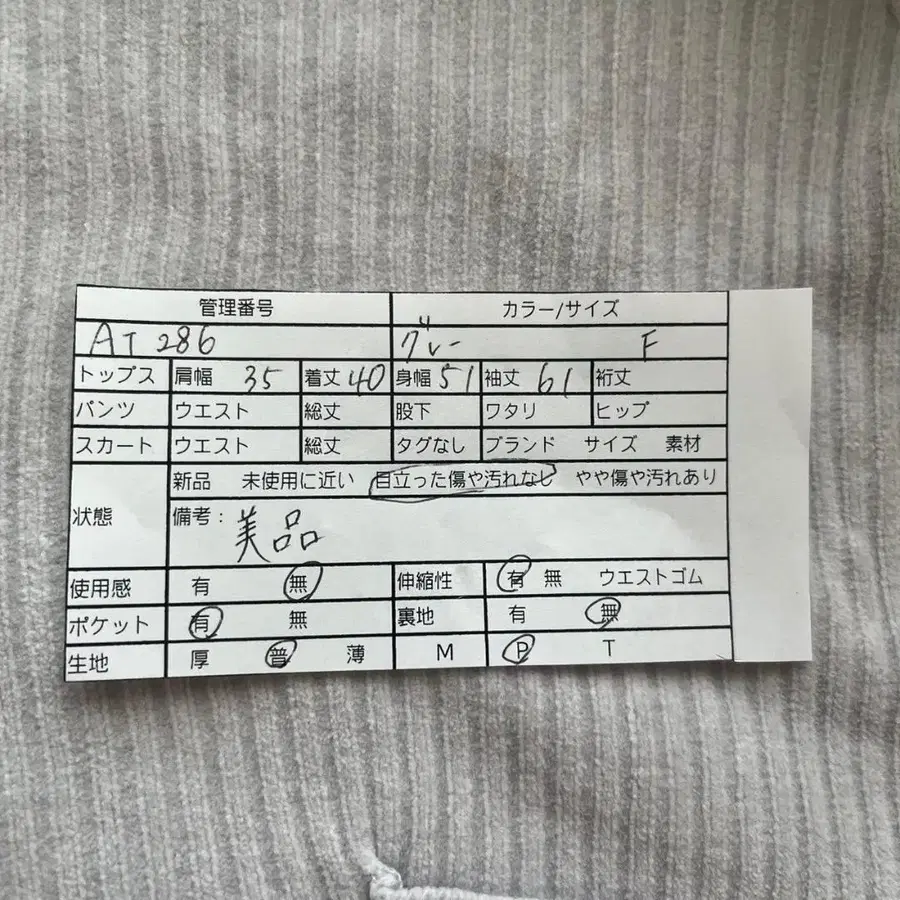 管理番号 カラー/サイズ
AT 286 グレー F
トップス 肩幅 35 着丈 40 身幅 51 袖丈 61 裄丈
パンツ ウエスト 総丈 股下 ワタリ ヒップ
スカート ウエスト 総丈 タグなし ブランド サイズ 素材
新品 未使用に近い 目立った傷や汚れなし やや傷や汚れあり
状態 備考: 美品
使用感 有 無 伸縮性 有 無 ウエストゴム
ポケット 有 無 裏地 有 無
生地 厚 普 薄 M P T